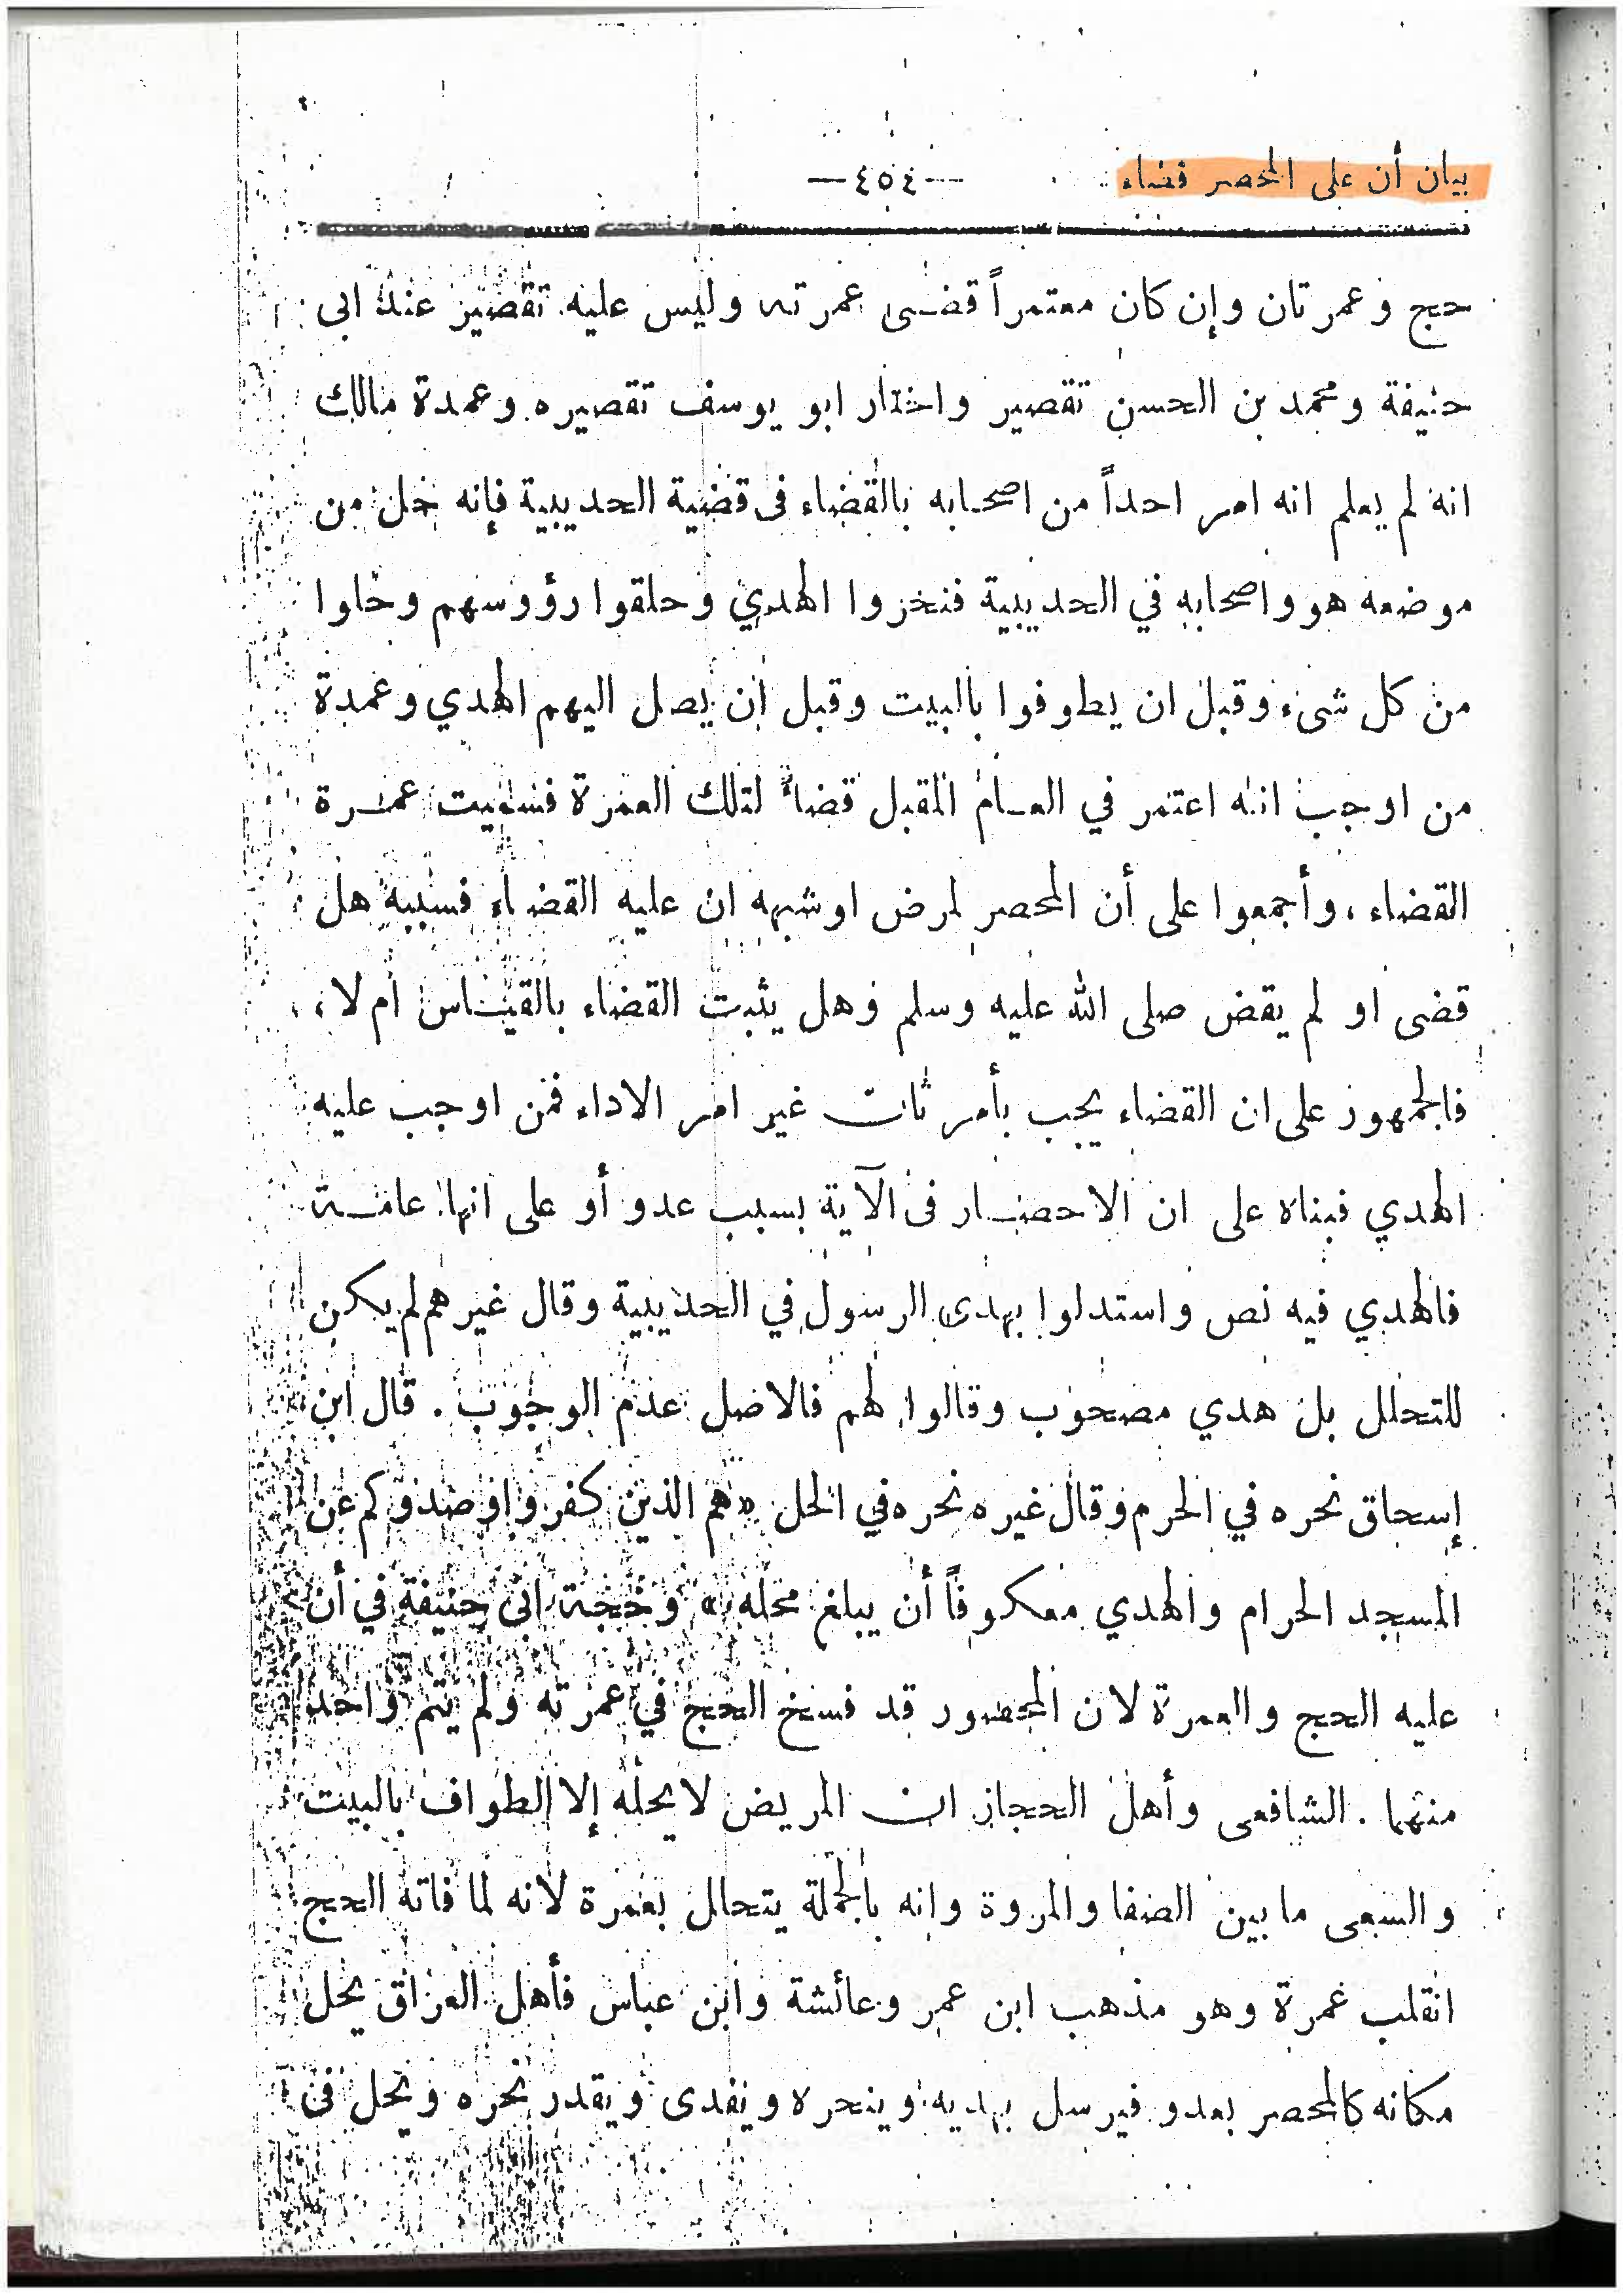 بيان أن على المحصر قضاء
—٤٥٤—
حج وعمرتان وإن كان معتمراً قضى عمرته وليس عليه تقصير عند ابى
حنيفة ومحمد بن الحسن تقصير واختار ابو يوسف تقصيره وعمدة مالك
انه لم يعلم انه امر احداً من اصحابه بالقضاء فى قضية الحديبية فإنه حل من
موضعه هو واصحابه في الحديبية فنحروا الهدي وحلقوا رؤوسهم وحلوا
من كل شىء وقبل ان يطوفوا بالبيت وقبل ان يصل اليهم الهدي وعمدة
من اوجب انه اعتمر في العام المقبل قضاءً لتلك العمرة فسميت عمرة
القضاء ، وأجمعوا على أن المحصر لمرض اوشبهه ان عليه القضاء فسببه هل
قضى او لم يقض صلى الله عليه وسلم وهل يثبت القضاء بالقياس أم لا ،
فالجمهور على ان القضاء يجب بأمر ثان غير امر الاداء فمن اوجب عليه
الهدي فبناه على ان الاحصار فى الآية بسبب عدو أو على انها عامة
فالهدي فيه نص واستدلوا بهدى الرسول في الحديبية وقال غيرهم لم يكن
للتحلل بل هدي مصحوب وقالوا لهم فالاصل عدم الوجوب . قال ابن
إسحاق نحره في الحرم وقال غيره نحره في الحل «هم الذين كفروا وصدوكم عن
المسجد الحرام والهدي معكوفاً أن يبلغ محله» وحجة ابى حنيفة في أن
عليه الحج والعمرة لان المحصور قد فسخ الحج في عمرته ولم يتم واحداً
منهما . الشافعى وأهل الحجاز ان المريض لا يحله إلا الطواف بالبيت
والسعى ما بين الصفا والمروة وانه بالجملة يتحلل بعمرة لأنه لما فاته الحج
انقلب عمرة وهو مذهب ابن عمر وعائشة وابن عباس فأهل العراق يحل
مكانه كالمحصر بعدو فيرسل بهديه وينحره ويفدى ويقدر نحره ويحل فى